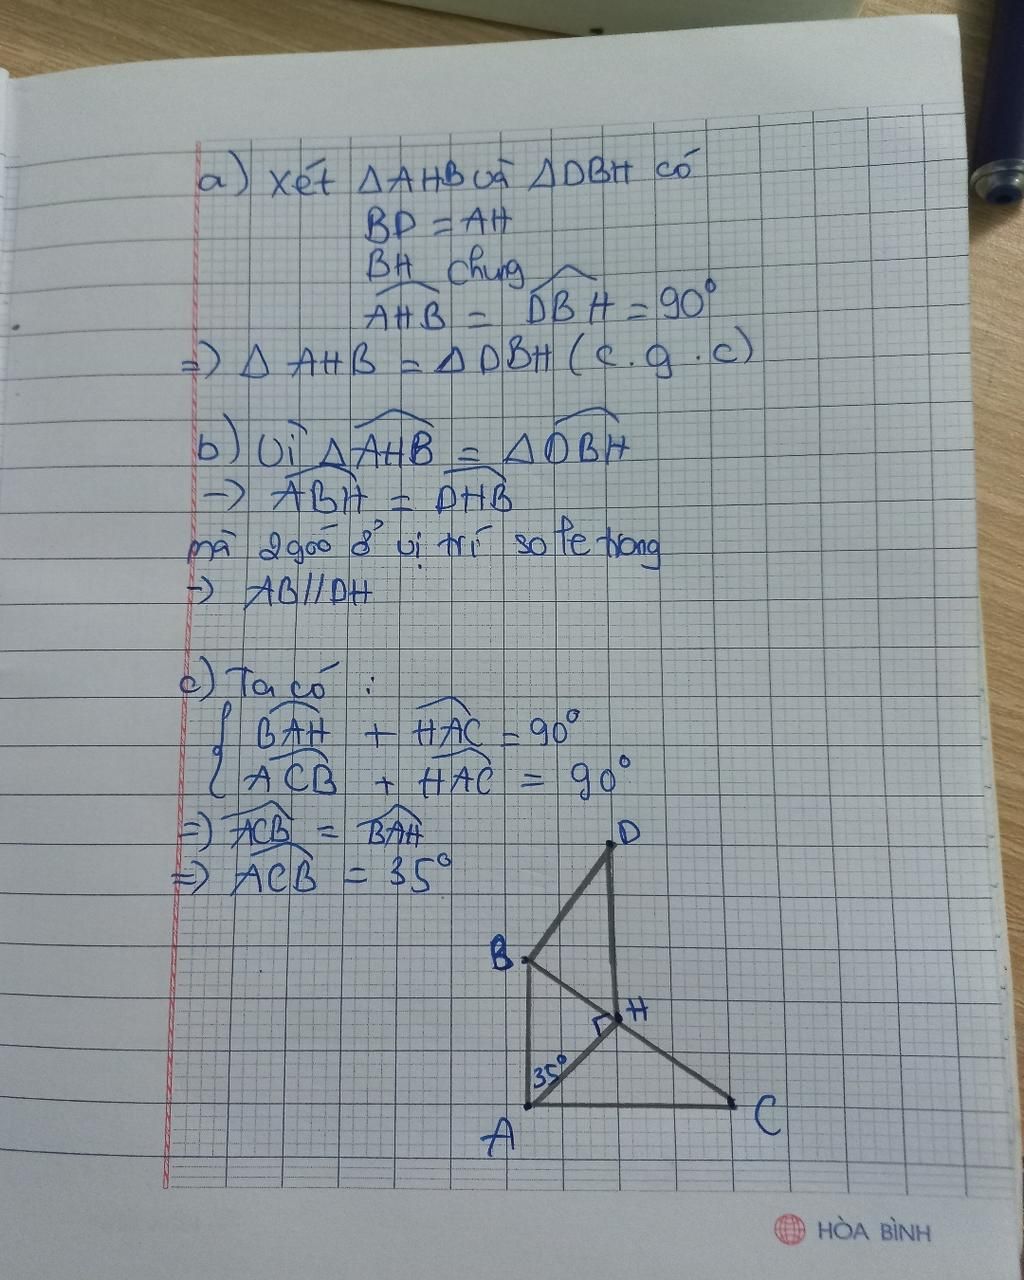 a) Xét ΔAHB và ΔDBH có
BD = AH
BH chung
AHB = DBH = 90°
=> Δ AHB = Δ DBH (c.g.c)
b) Vì ΔAHB = ΔDBH
-> ABH = DHB
mà 2 góc ở vị trí so le trong
-> AB//DH
c) Ta có :
BAH + HAC = 90°
ACB + HAC = 90°
=> ACB = BAH
=> ACB = 35°
D
B
H
35°
A
C
HÒA BÌNH